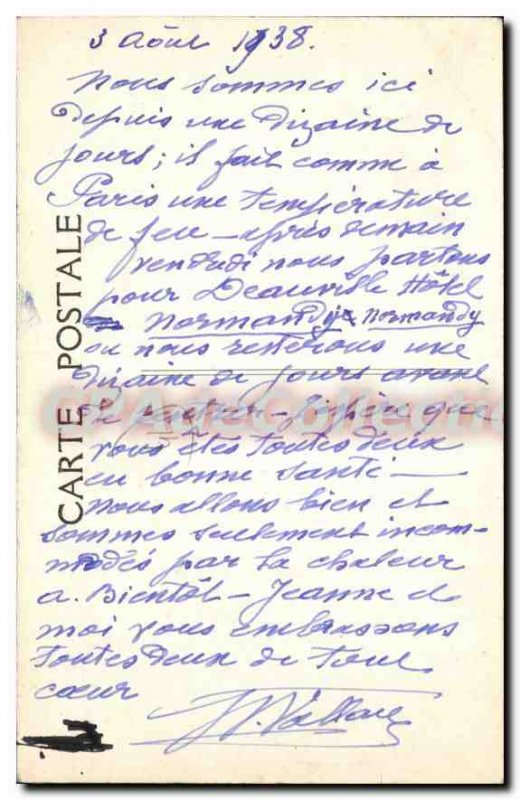 3 Août 1938.
Nous sommes ici
depuis une dizaine de
jours; il fait comme à
Paris une température
de feu – après demain
vendredi nous partons
pour Deauville Hôtel
Normandy Normandy
ou nous resterons une
dizaine de jours avant
de rentrer – j'espère que
vous êtes toutes deux
en bonne santé –
nous allons bien et
sommes seulement incom-
modés par la chaleur
a. Bientôt – Jeanne et
moi vous embrassons
toutes deux de tout
cœur
CARTE POSTALE